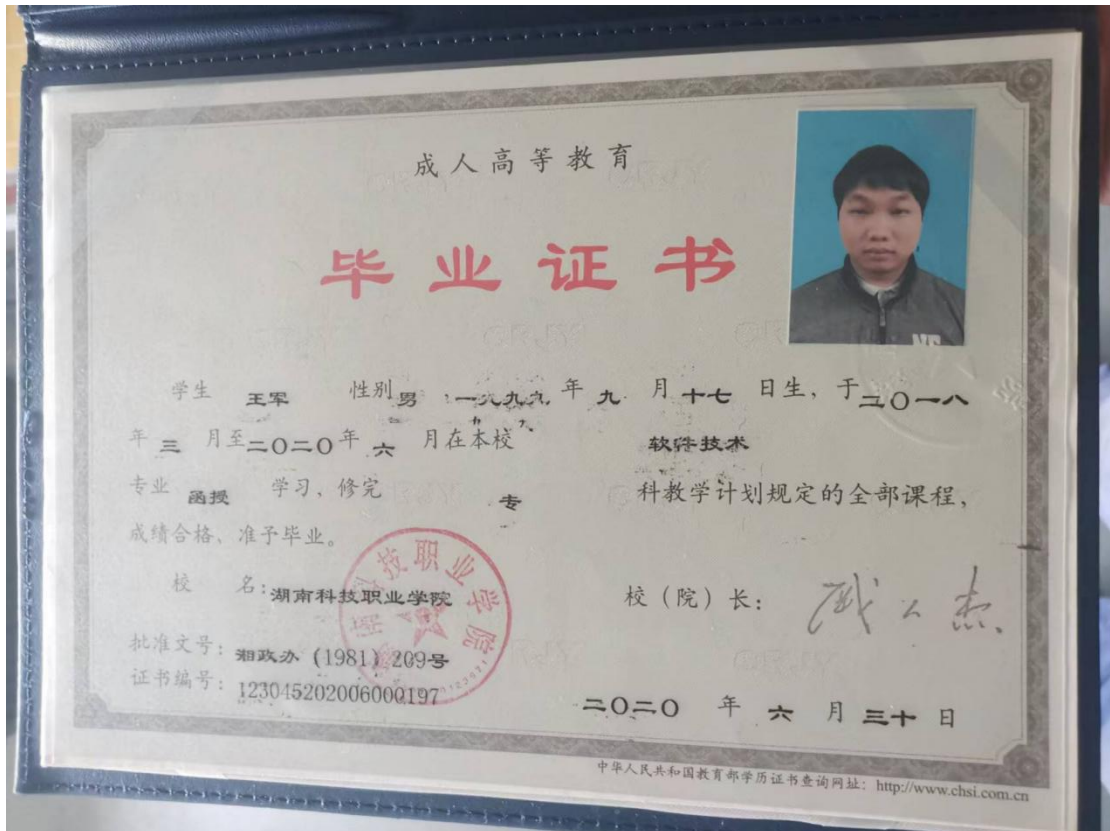 成人高等教育
毕业证书
学生 王军 性别 男 一九九九 年 九 月 十七 日生，于 二〇一八
年 三 月至 二〇二〇 年 六 月在本校 软件技术
专业 函授 学习、修完 专 科教学计划规定的全部课程，
成绩合格、准予毕业。
校 名：湖南科技职业学院
校（院）长：
批准文号：湘政办（1981）209号
证书编号：123045202006000197
二〇二〇 年 六 月 三十 日
中华人民共和国教育部学历证书查询网址：http://www.chsi.com.cn